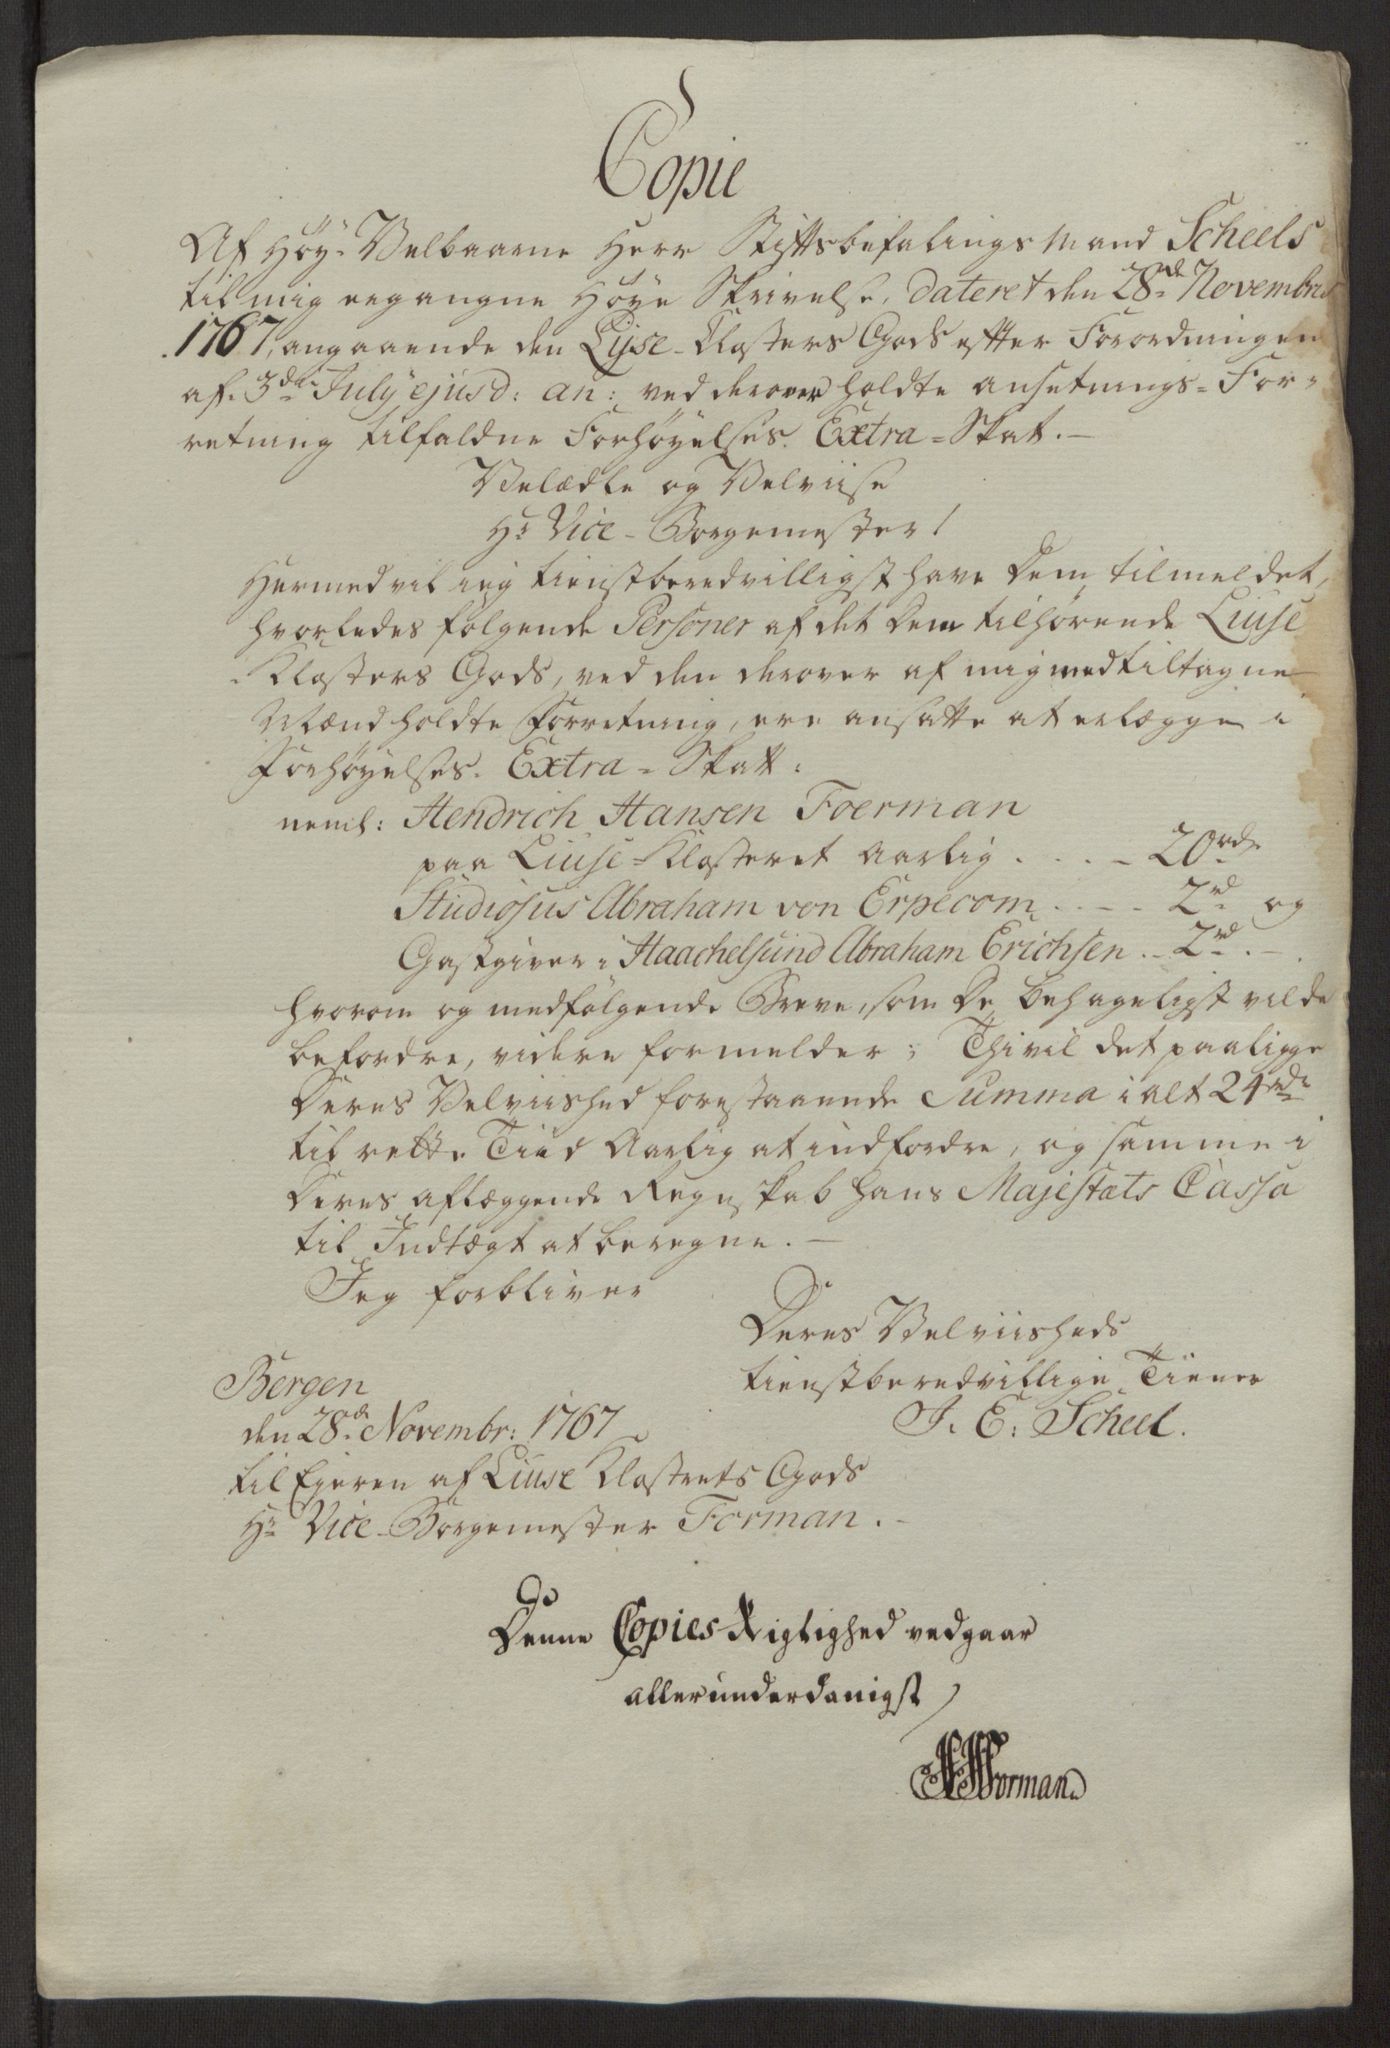 Copie
Af Höy-Velbaarne Herr Stiftsbefalings Mand Scheels
til mig ergangne Höye Skrivelse, dateret den 28de Novembris
1767, angaaende den Lijse-Klosters Gods efter Forordningen
af 3die July ejusd: an: ved derover holdte ansetnings-For-
retning tilfaldne Forhöyelses Extra-Skat.-
Velædle og Velviise
Hr Vice-Borgemester!
Hermed vil ieg tienstberedvilligst have Dem tilmeldet,
hvorledes følgende Personer af det Dem tilhørende Liuse
Klosters Gods, ved den derover af mig med tiltagne
Mænd holdte Forretning, ere ansatte at erlægge i
Forhöyelses Extra-Skatt:
neml: Hendrich Hansen Foerman
paa Liuse-Klosteret Aarlig . . . . - 20rd
Studiosus Abraham von Erpecom . . - - 2rd og
Gastgiver i Haachelsund Abraham Erichsen . . 2rd . -
hvorom og medfølgende Breve, som De behageligst vilde
befordre, videre formelder; Thi vil det paaligge
Deres Velviished forestaaende Summa i alt 24rd
til rette Tiid Aarlig at indfordre, og samme i
Deres aflæggende Regnskab Hans Majestæts Cassa
til Indtægt at beregne. -
Jeg forbliver
Deres Velviisheds
tienstberedvillige Tiener
J. E. Scheel.
Bergen
den 28de Novembr: 1767
til Ejeren af Liuse Klosters Gods
Hr Vice-Borgemester Forman . -
Denne Copies Rigtighed vedgaar
allerunderdanigst
HHForman